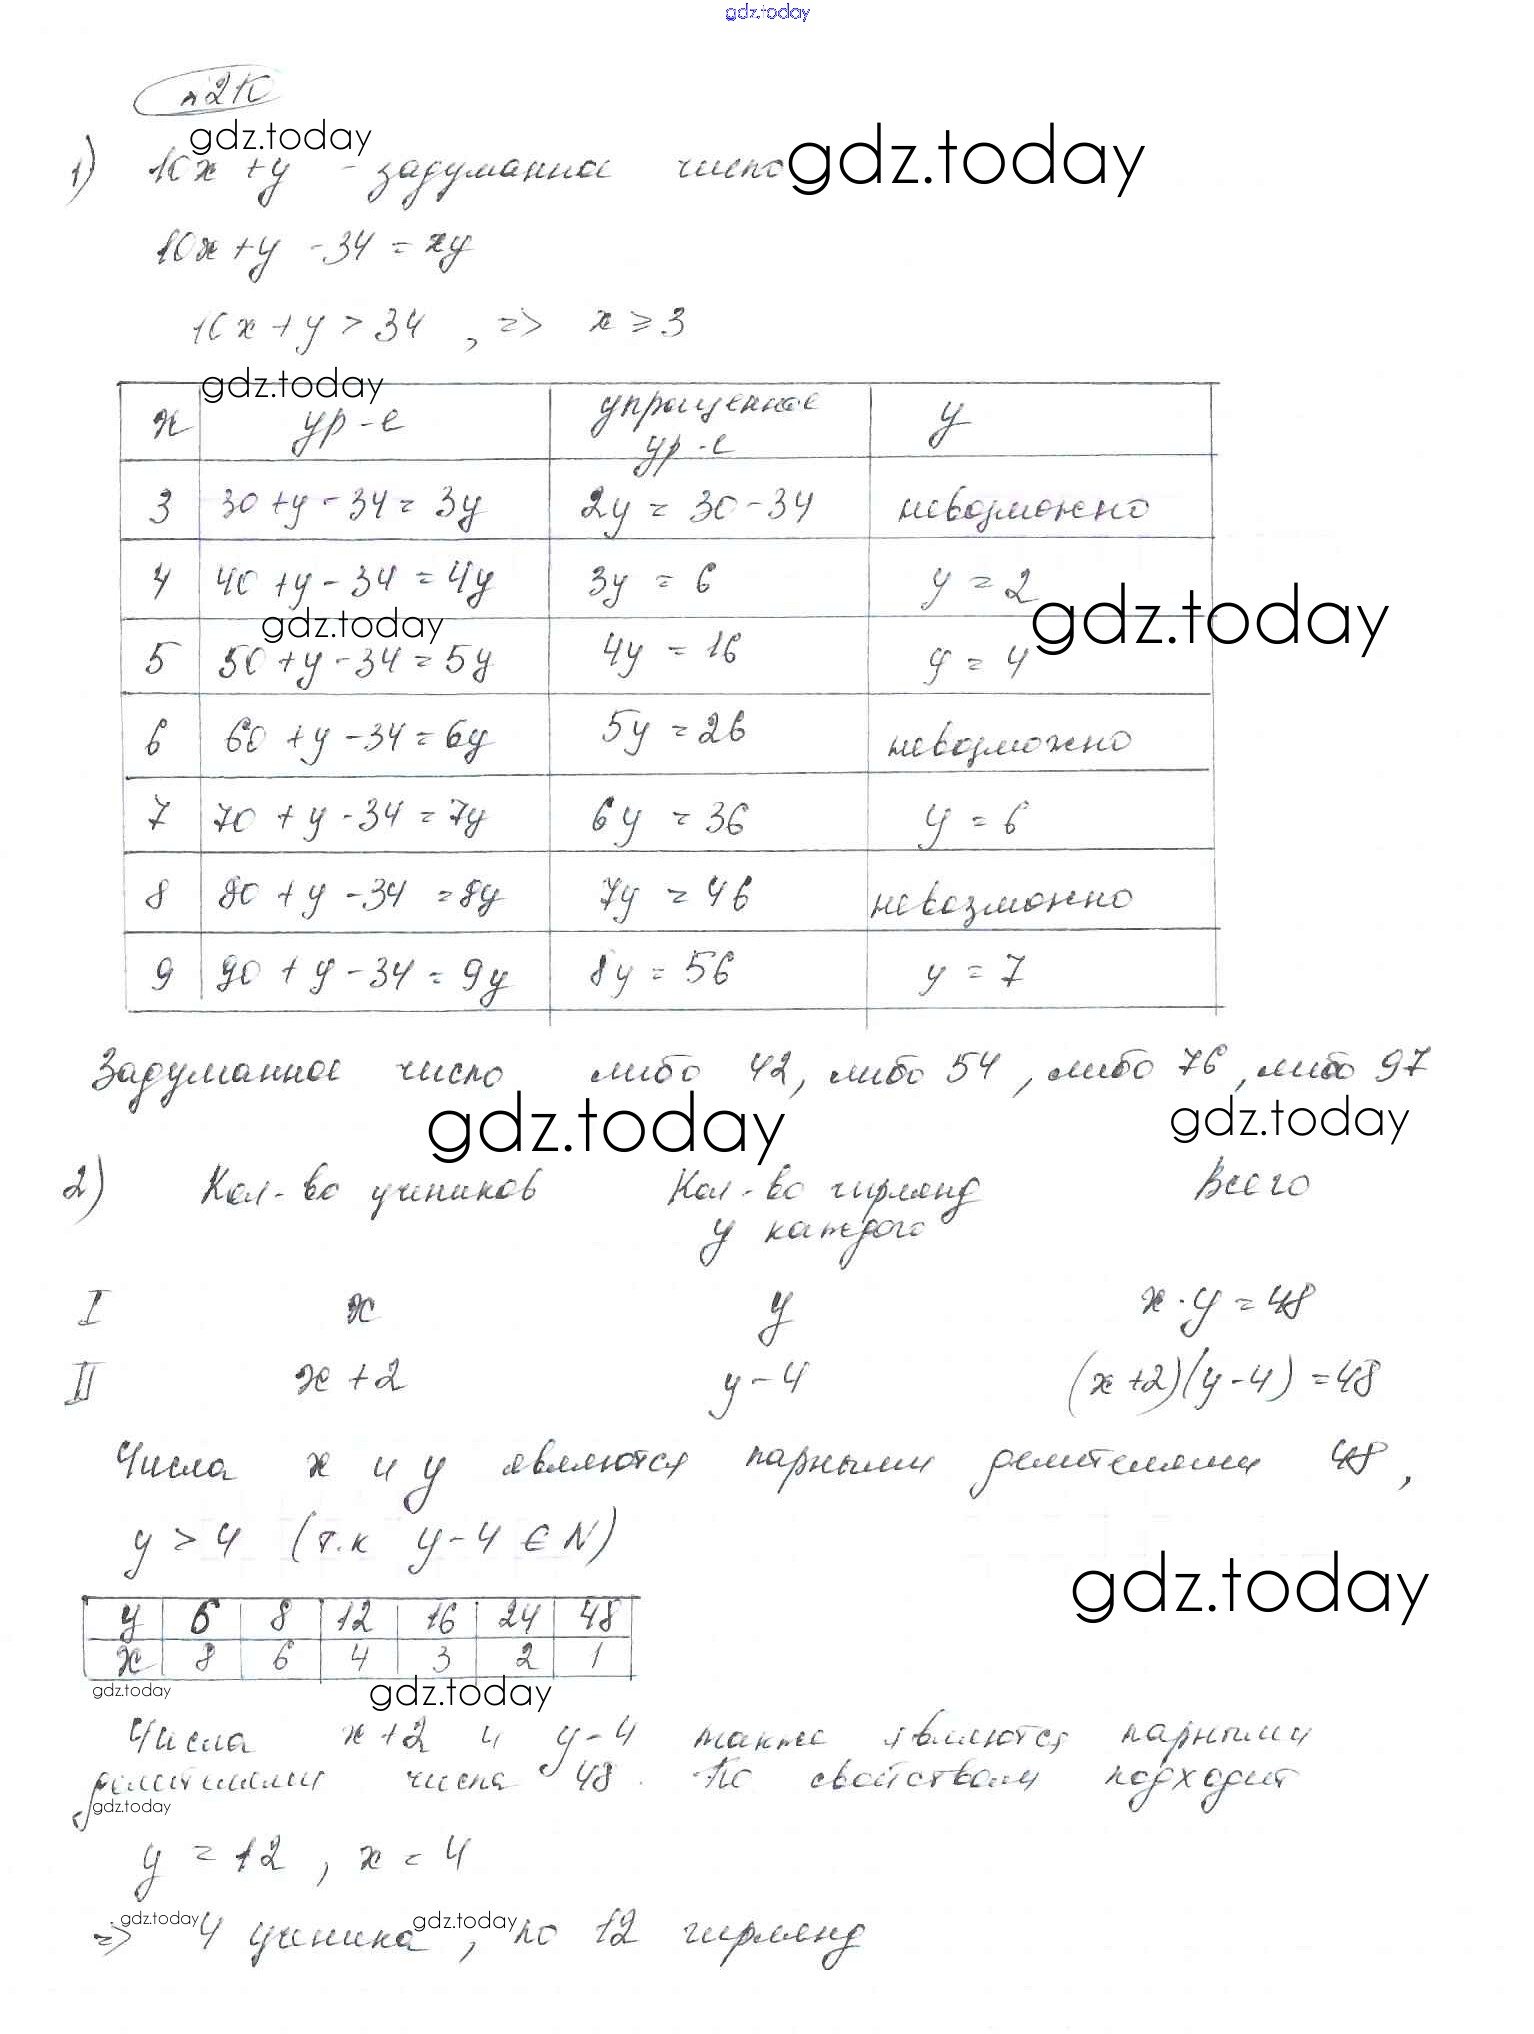 gdz.today
№210
gdz.today
1) 10x + y - задуманное число gdz.today
10x + y - 34 = xy
10x + y > 34 , => x ≥ 3
gdz.today
x ур-е упрощенное ур-е y
3 30 + y - 34 = 3y 2y = 30 - 34 невозможно
4 40 + y - 34 = 4y 3y = 6 y = 2
gdz.today gdz.today
5 50 + y - 34 = 5y 4y = 16 y = 4
6 60 + y - 34 = 6y 5y = 26 невозможно
7 70 + y - 34 = 7y 6y = 36 y = 6
8 80 + y - 34 = 8y 7y = 46 невозможно
9 90 + y - 34 = 9y 8y = 56 y = 7
Задуманное число либо 42, либо 54, либо 76, либо 97
gdz.today gdz.today
2) Кол-во учеников Кол-во гирлянд Всего
у каждого
I x y x · y = 48
II x + 2 y - 4 (x + 2)(y - 4) = 48
Числа x и y являются парными делителями 48,
y > 4 (т.к y - 4 ∈ N)
gdz.today
y 6 8 12 16 24 48
x 8 6 4 3 2 1
gdz.today gdz.today
Числа x+2 и y-4 также являются парными
делителями числа 48. По свойствам подходит
gdz.today
y = 12 , x = 4
gdz.today gdz.today
=> 4 ученика, по 12 гирлянд